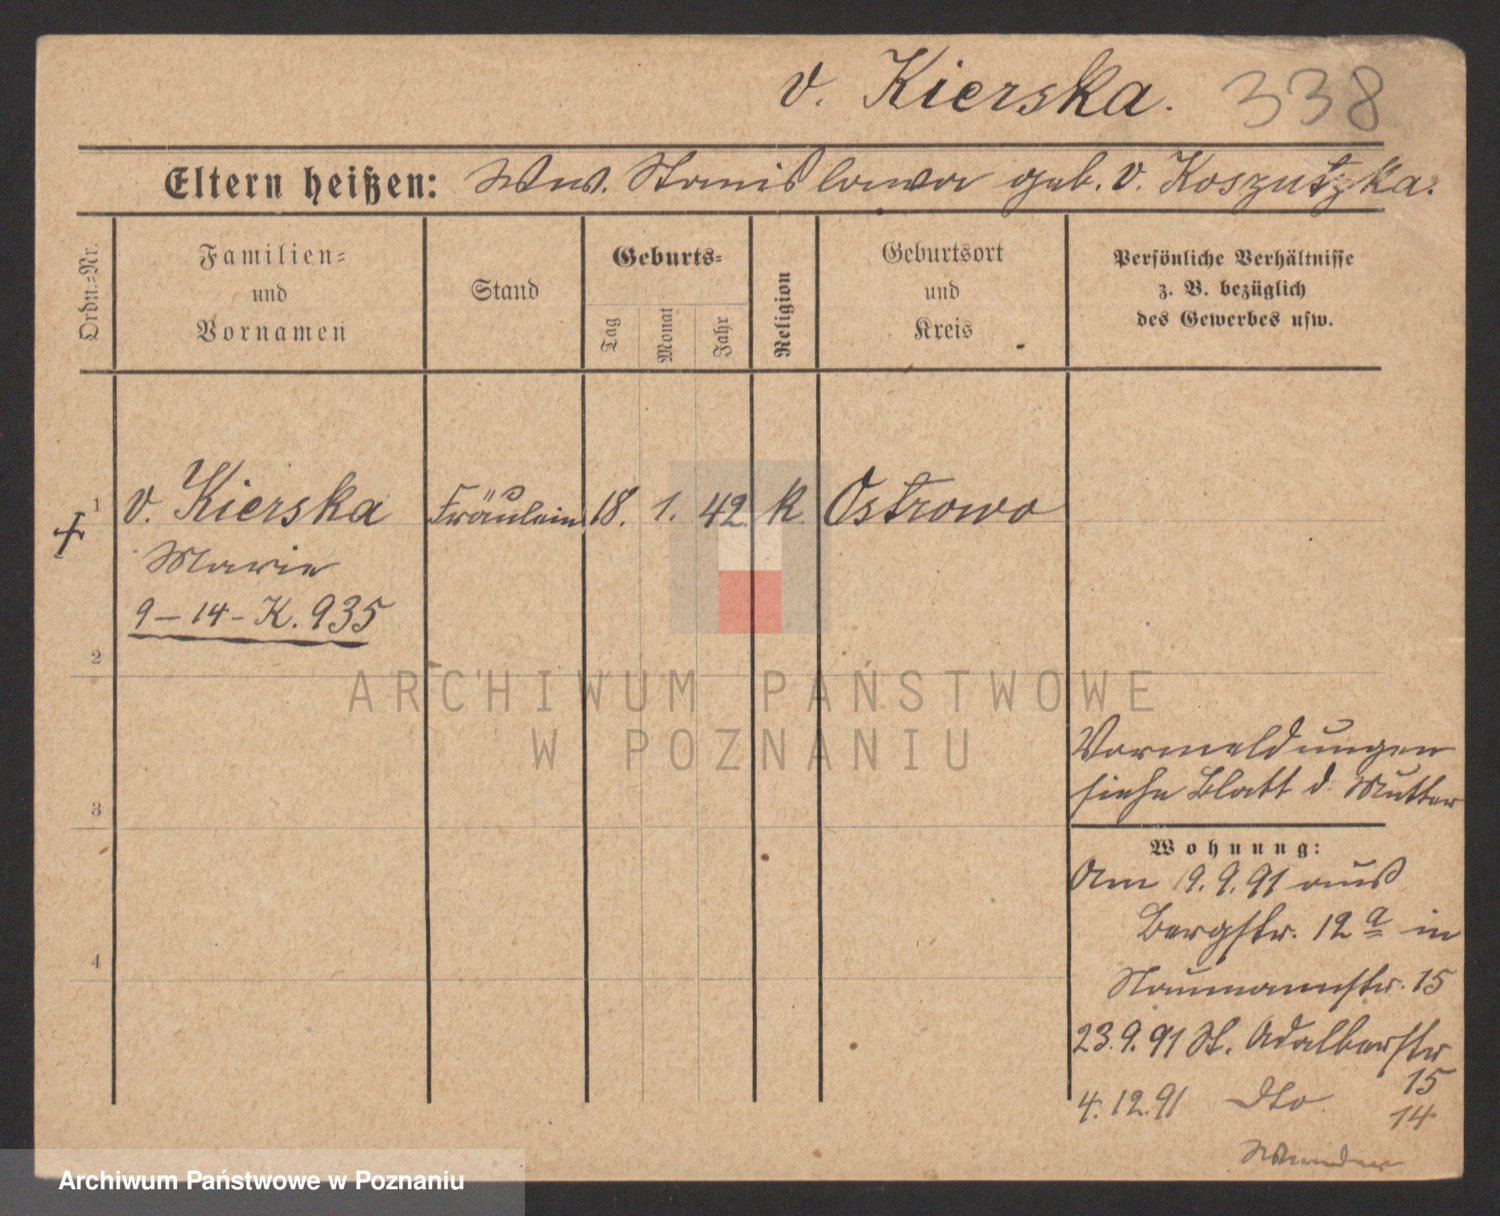 v. Kierska. 338
Eltern heißen: Wwe. Stanislawa geb. v. Koszutzka.
Ordn.=Nr.
Familien=
und
Vornamen
Stand
Geburts=
Tag
Monat
Jahr
Religion
Geburtsort
und
Kreis
Persönliche Verhältnisse
z. B. bezüglich
des Gewerbes usw.
1 v. Kierska Fräulein 18. 1. 42 k. Ostrowo
Marie
9-14-K. 935
2
ARCHIWUM PAŃSTWOWE
W POZNANIU
Vormeldungen
siehe Blatt d. Mutter
3
Wohnung:
Am 19.9.91 aus
Bergstr. 12 a in
Naumannstr. 15
4
23.9.91 St. Adalbertstr
15
4.12.91 dto 14
Archiwum Państwowe w Poznaniu